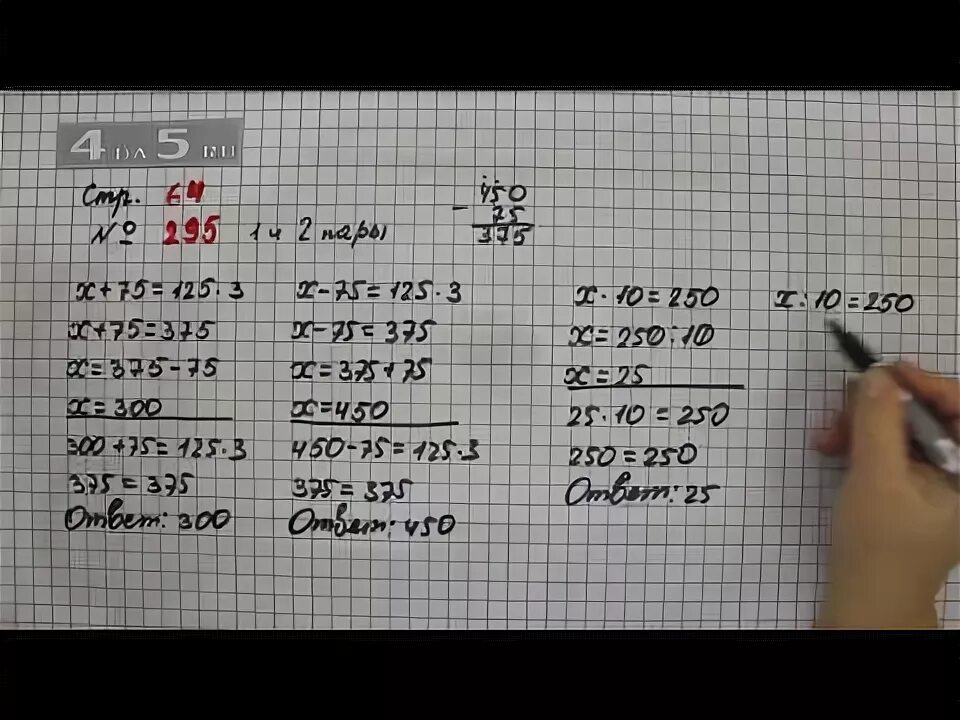 4 на 5
Стр. 64
№ 295 1 и 2 пары
450
- 75
375
x+75=125·3
x+75=375
x=375-75
x=300
300+75=125·3
375=375
Ответ: 300
x-75=125·3
x-75=375
x=375+75
x=450
450-75=125·3
375=375
Ответ: 450
x·10=250
x=250:10
x=25
25·10=250
250=250
Ответ: 25
x:10=250